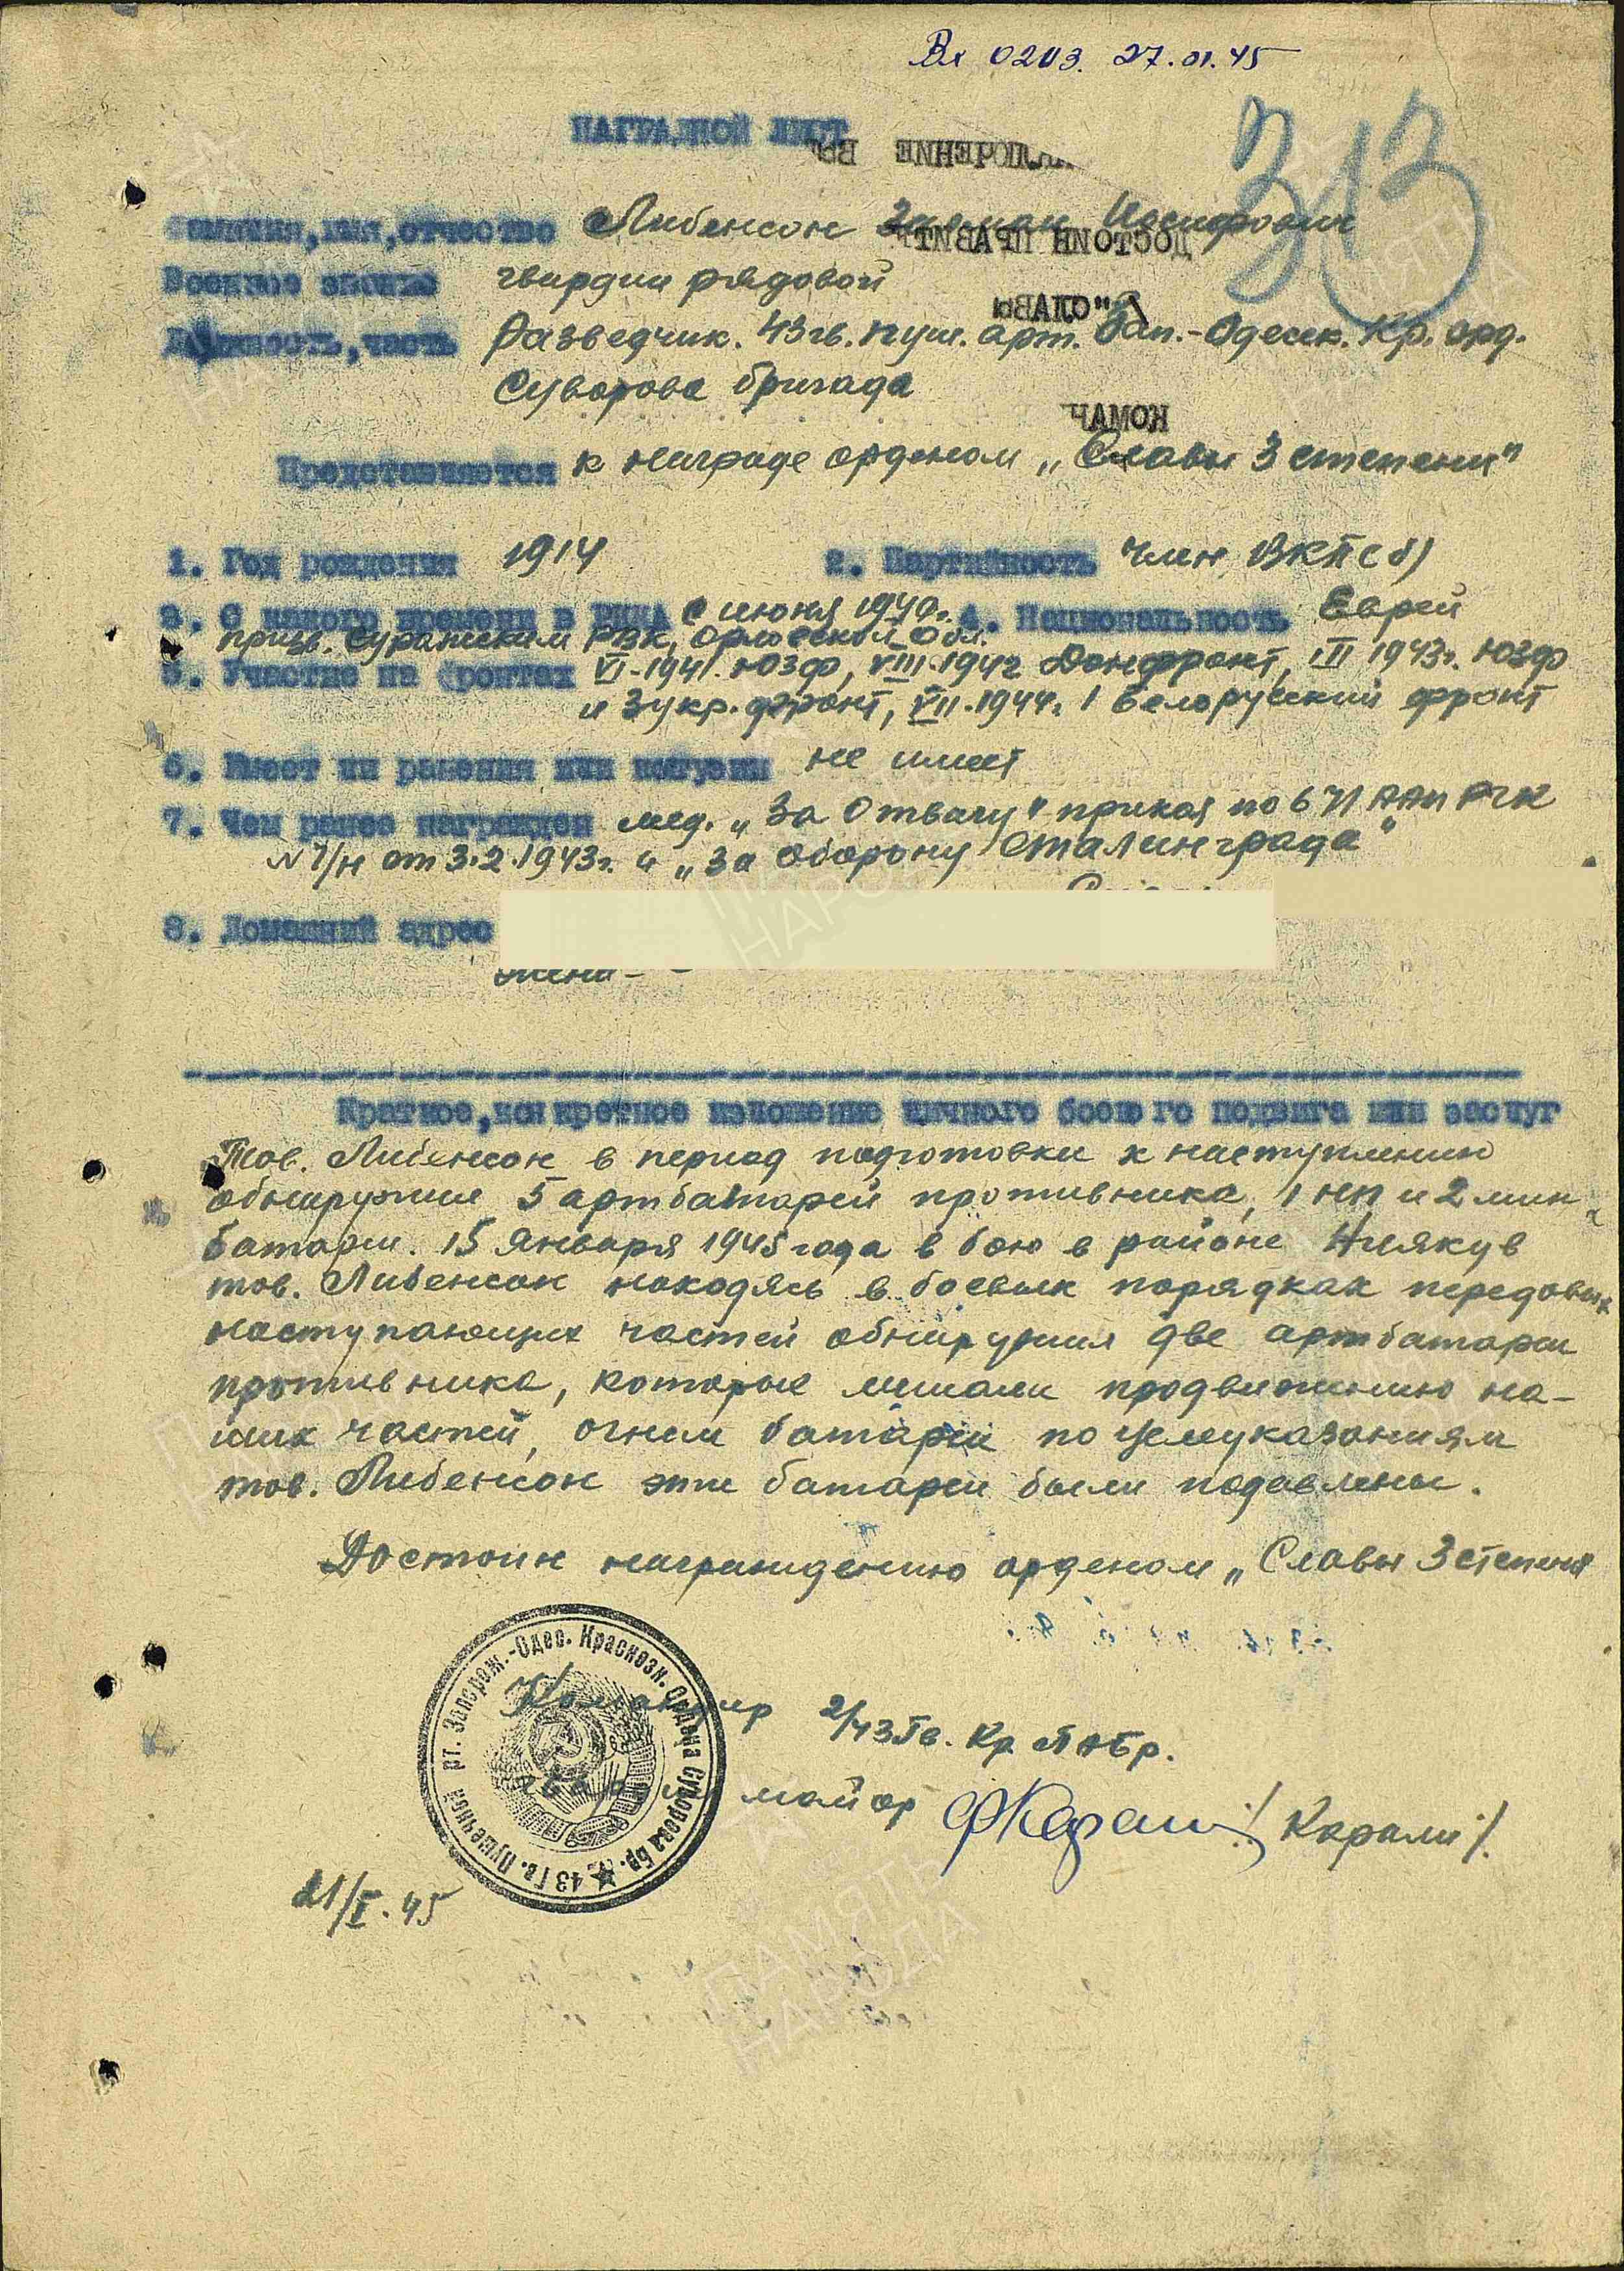 Вх 0203. 27.01.45
313
НАГРАДНОЙ ЛИСТ
Фамилия,имя,отчество Либенсон Залман Иосифович
Военное звание гвардии рядовой
Должность,часть Разведчик. 43 гв. пуш. арт. Зап.-Одесск. Кр. орд.
Суворова бригада
Представляется к награде орденом „Славы 3 степени"
1. Год рождения 1914 2. Партийность член ВКП(б)
3. С какого времени в РККА с июня 1940г. 4. Национальность Еврей
призв. Суражским РВК, Орловской обл.
5. Участие на фронтах VI-1941. ЮЗФ, VIII.1942 Донфронт, III 1943г. ЮЗФ
и 3 укр. фронт, VII.1944г. 1 Белорусский фронт
6. Имеет ли ранения или контузии не имеет
7. Чем ранее награжден мед. „За Отвагу" приказ по 671 ААП РГК
№ 1/н от 3.2.1943г. и „За оборону Сталинграда"
8. Домашний адрес
жена -
Краткое,конкретное изложение личного боевого подвига или заслуг
Тов. Либенсон в период подготовки к наступлению
обнаружил 5 артбатарей противника, 1 НП и 2 мин
батареи. 15 Января 1945 года в бою в районе
тов. Либенсон находясь в боевых порядках передовых
наступающих частей обнаружил две артбатареи
противника, которые мешали продвижению на-
ших частей, огнем батареи по целеуказаниям
тов. Либенсон эти батареи были подавлены.
Достоин награждению орденом „Славы 3 степени
Командир 2/43 Гв. Кр ПАБр.
гвардии майор /Карали/.
43 Гв. Пушечной Арт. Запорож.-Одес. Краснозн. Ордена Суворова Бр.
21/I.45